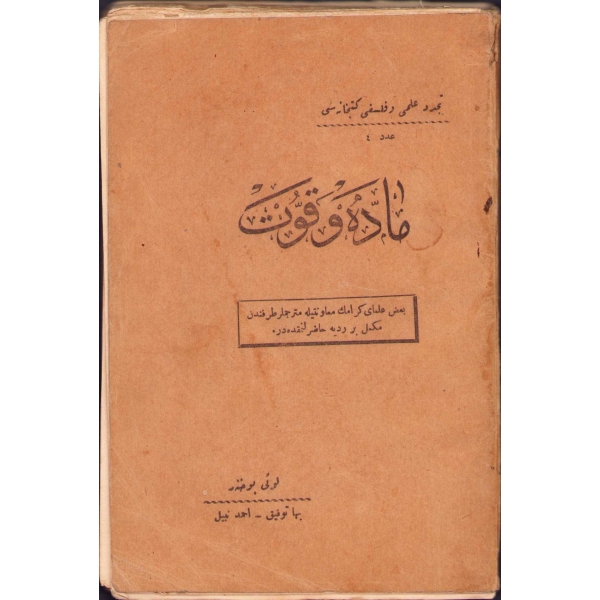 تجدد علمی و فلسفی کتبخانه سی
عدد ٤
مادّه و قوّت
بعض علمای کرامك معاونتیله مترجملر طرفندن
مکمل بر ردیه حاضر لنمقده در .
لوئی بوخنر
بها توفیق - احمد نبیل